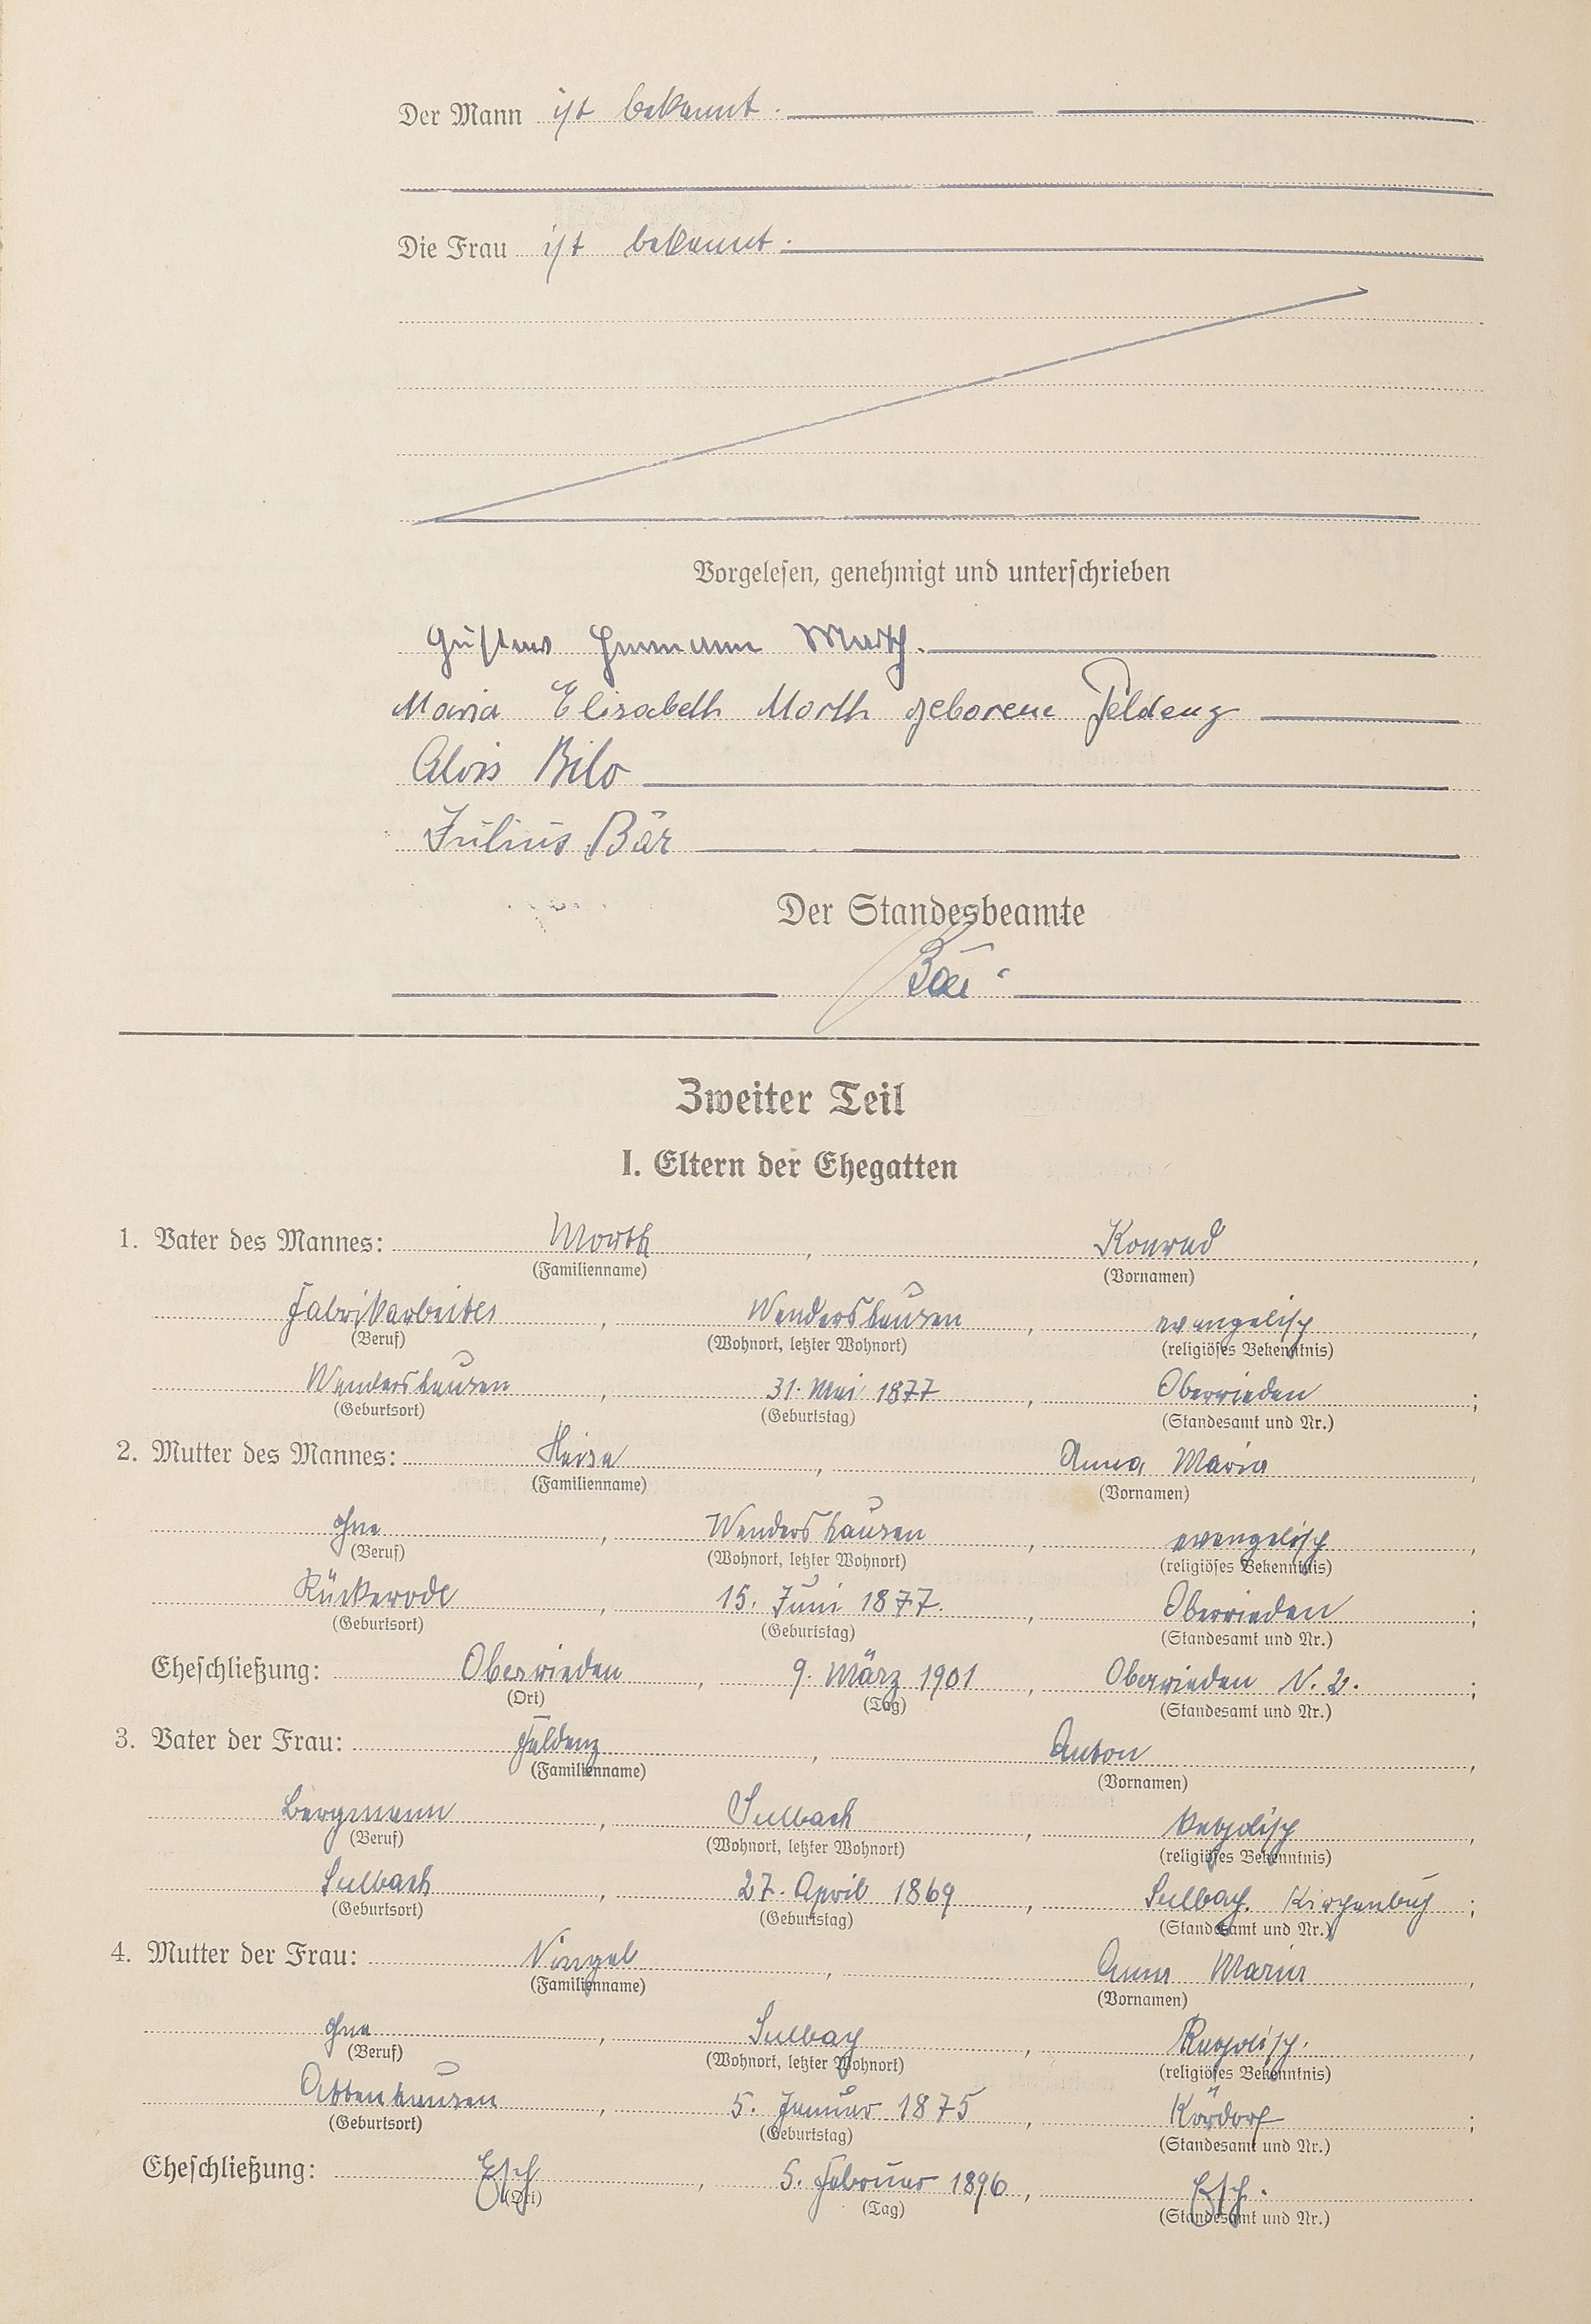 Der Mann ist bekannt.
Die Frau ist bekannt.
Vorgelesen, genehmigt und unterschrieben
Gustav Hermann Morth.
Maria Elisabeth Morth geborene Feldenz
Alois Bilo
Julius Bär
Der Standesbeamte
Bär
Zweiter Teil
I. Eltern der Ehegatten
1. Vater des Mannes: Morth, Konrad,
(Familienname) (Vornamen)
Fabrikarbeiter, Wendershausen, evangelisch,
(Beruf) (Wohnort, letzter Wohnort) (religiöses Bekenntnis)
Wendershausen, 31. Mai 1877, Oberrieden;
(Geburtsort) (Geburtstag) (Standesamt und Nr.)
2. Mutter des Mannes: Heise, Anna Maria,
(Familienname) (Vornamen)
ohne, Wendershausen, evangelisch,
(Beruf) (Wohnort, letzter Wohnort) (religiöses Bekenntnis)
Rückerode, 15. Juni 1877., Oberrieden;
(Geburtsort) (Geburtstag) (Standesamt und Nr.)
Eheschließung: Oberrieden, 9. März 1901, Oberrieden N. 2.;
(Ort) (Tag) (Standesamt und Nr.)
3. Vater der Frau: Feldenz, Anton,
(Familienname) (Vornamen)
Bergmann, Sulbach, katholisch,
(Beruf) (Wohnort, letzter Wohnort) (religiöses Bekenntnis)
Sulbach, 27. April 1869, Sulbach. Kirchenbuch;
(Geburtsort) (Geburtstag) (Standesamt und Nr.)
4. Mutter der Frau: Anna Maria,
(Familienname) (Vornamen)
ohne, Sulbach, Katholisch.,
(Beruf) (Wohnort, letzter Wohnort) (religiöses Bekenntnis)
Attenhausen, 5. Januar 1875, Kördorf;
(Geburtsort) (Geburtstag) (Standesamt und Nr.)
Eheschließung: Esch, 5. Februar 1896, Esch.
(Ort) (Tag) (Standesamt und Nr.)